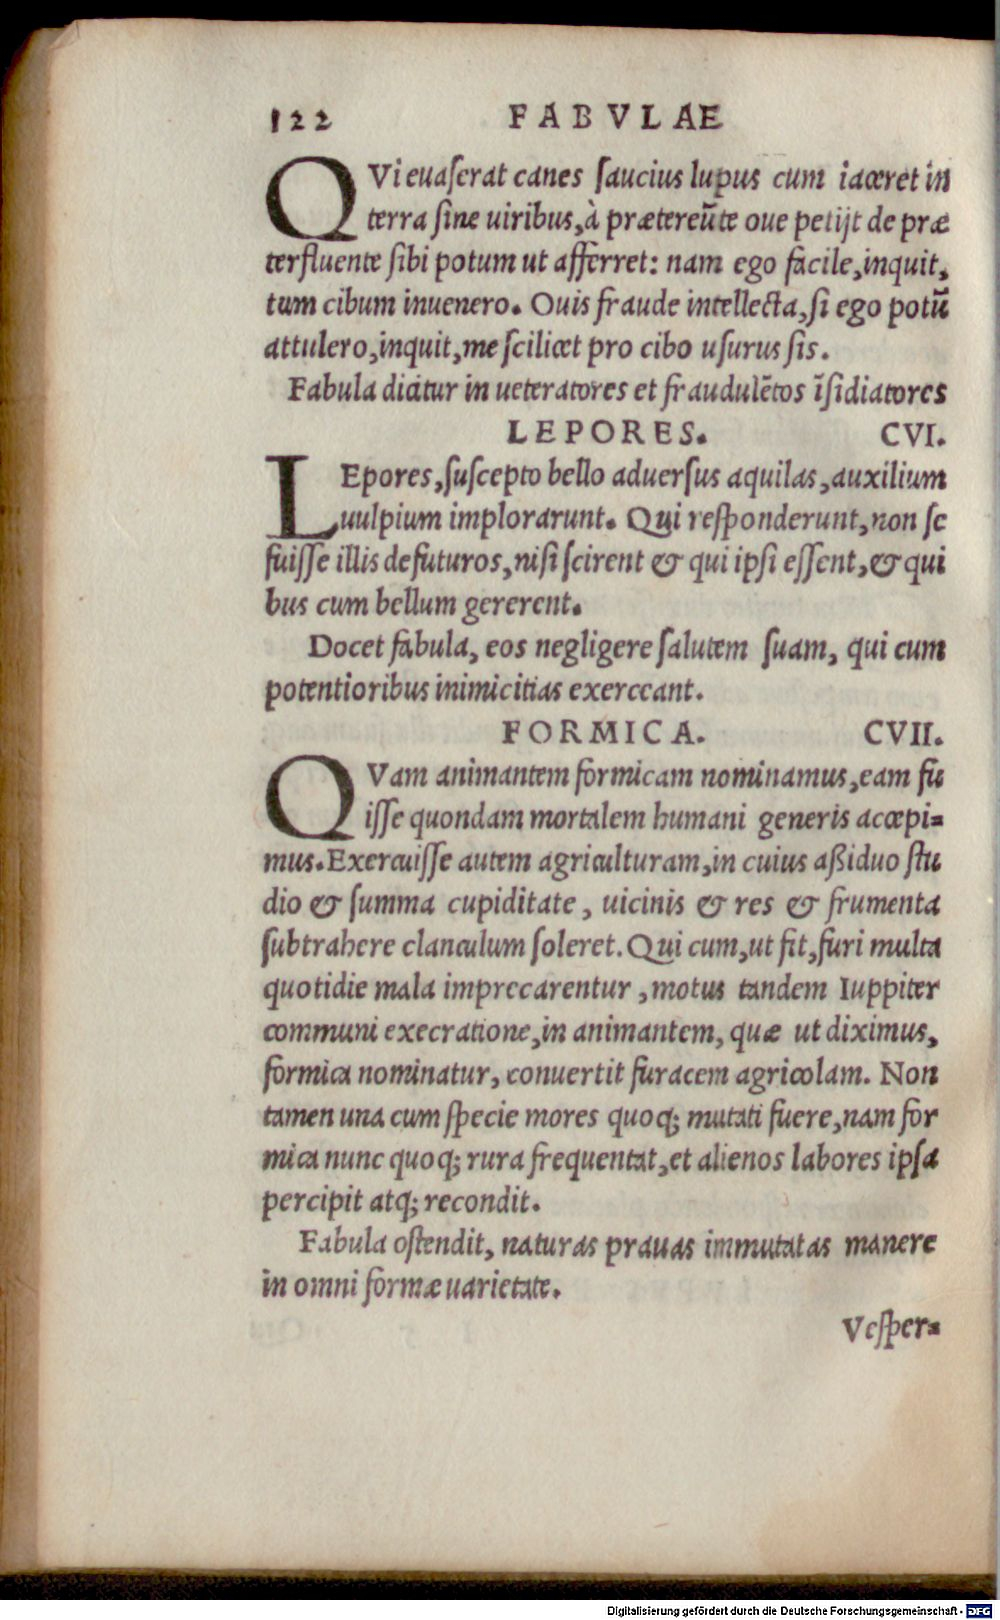 122 FABVLAE
QVi euaſerat canes ſaucius lupus cum iaceret in
terra ſine uiribus, à prætereūte oue petijt de præ
terfluente ſibi potum ut afferret: nam ego facile, inquit,
tum cibum inuenero. Ouis fraude intellecta, ſi ego potū
attulero, inquit, me ſcilicet pro cibo uſurus ſis.
Fabula dicitur in ueteratores et fraudulētos īſidiatores
LEPORES. CVI.
LEpores, ſuſcepto bello aduerſus aquilas, auxilium
uulpium implorarunt. Qui reſponderunt, non ſe
fuiſſe illis defuturos, niſi ſcirent & qui ipſi eſſent, & qui
bus cum bellum gererent.
Docet fabula, eos negligere ſalutem ſuam, qui cum
potentioribus inimicitias exerceant.
FORMICA. CVII.
QVam animantem formicam nominamus, eam fu
iſſe quondam mortalem humani generis accepi=
mus. Exercuiſſe autem agriculturam, in cuius aßiduo ſtu
dio & ſumma cupiditate, uicinis & res & frumenta
ſubtrahere clanculum ſoleret. Qui cum, ut fit, furi multa
quotidie mala imprecarentur, motus tandem Iuppiter
communi execratione, in animantem, quæ ut diximus,
formica nominatur, conuertit furacem agricolam. Non
tamen una cum ſpecie mores quoq; mutati fuere, nam for
mica nunc quoq; rura frequentat, et alienos labores ipſa
percipit atq; recondit.
Fabula oſtendit, naturas prauas immutatas manere
in omni formæ uarietate.
Veſper=
Digitalisierung gefördert durch die Deutsche Forschungsgemeinschaft - DFG